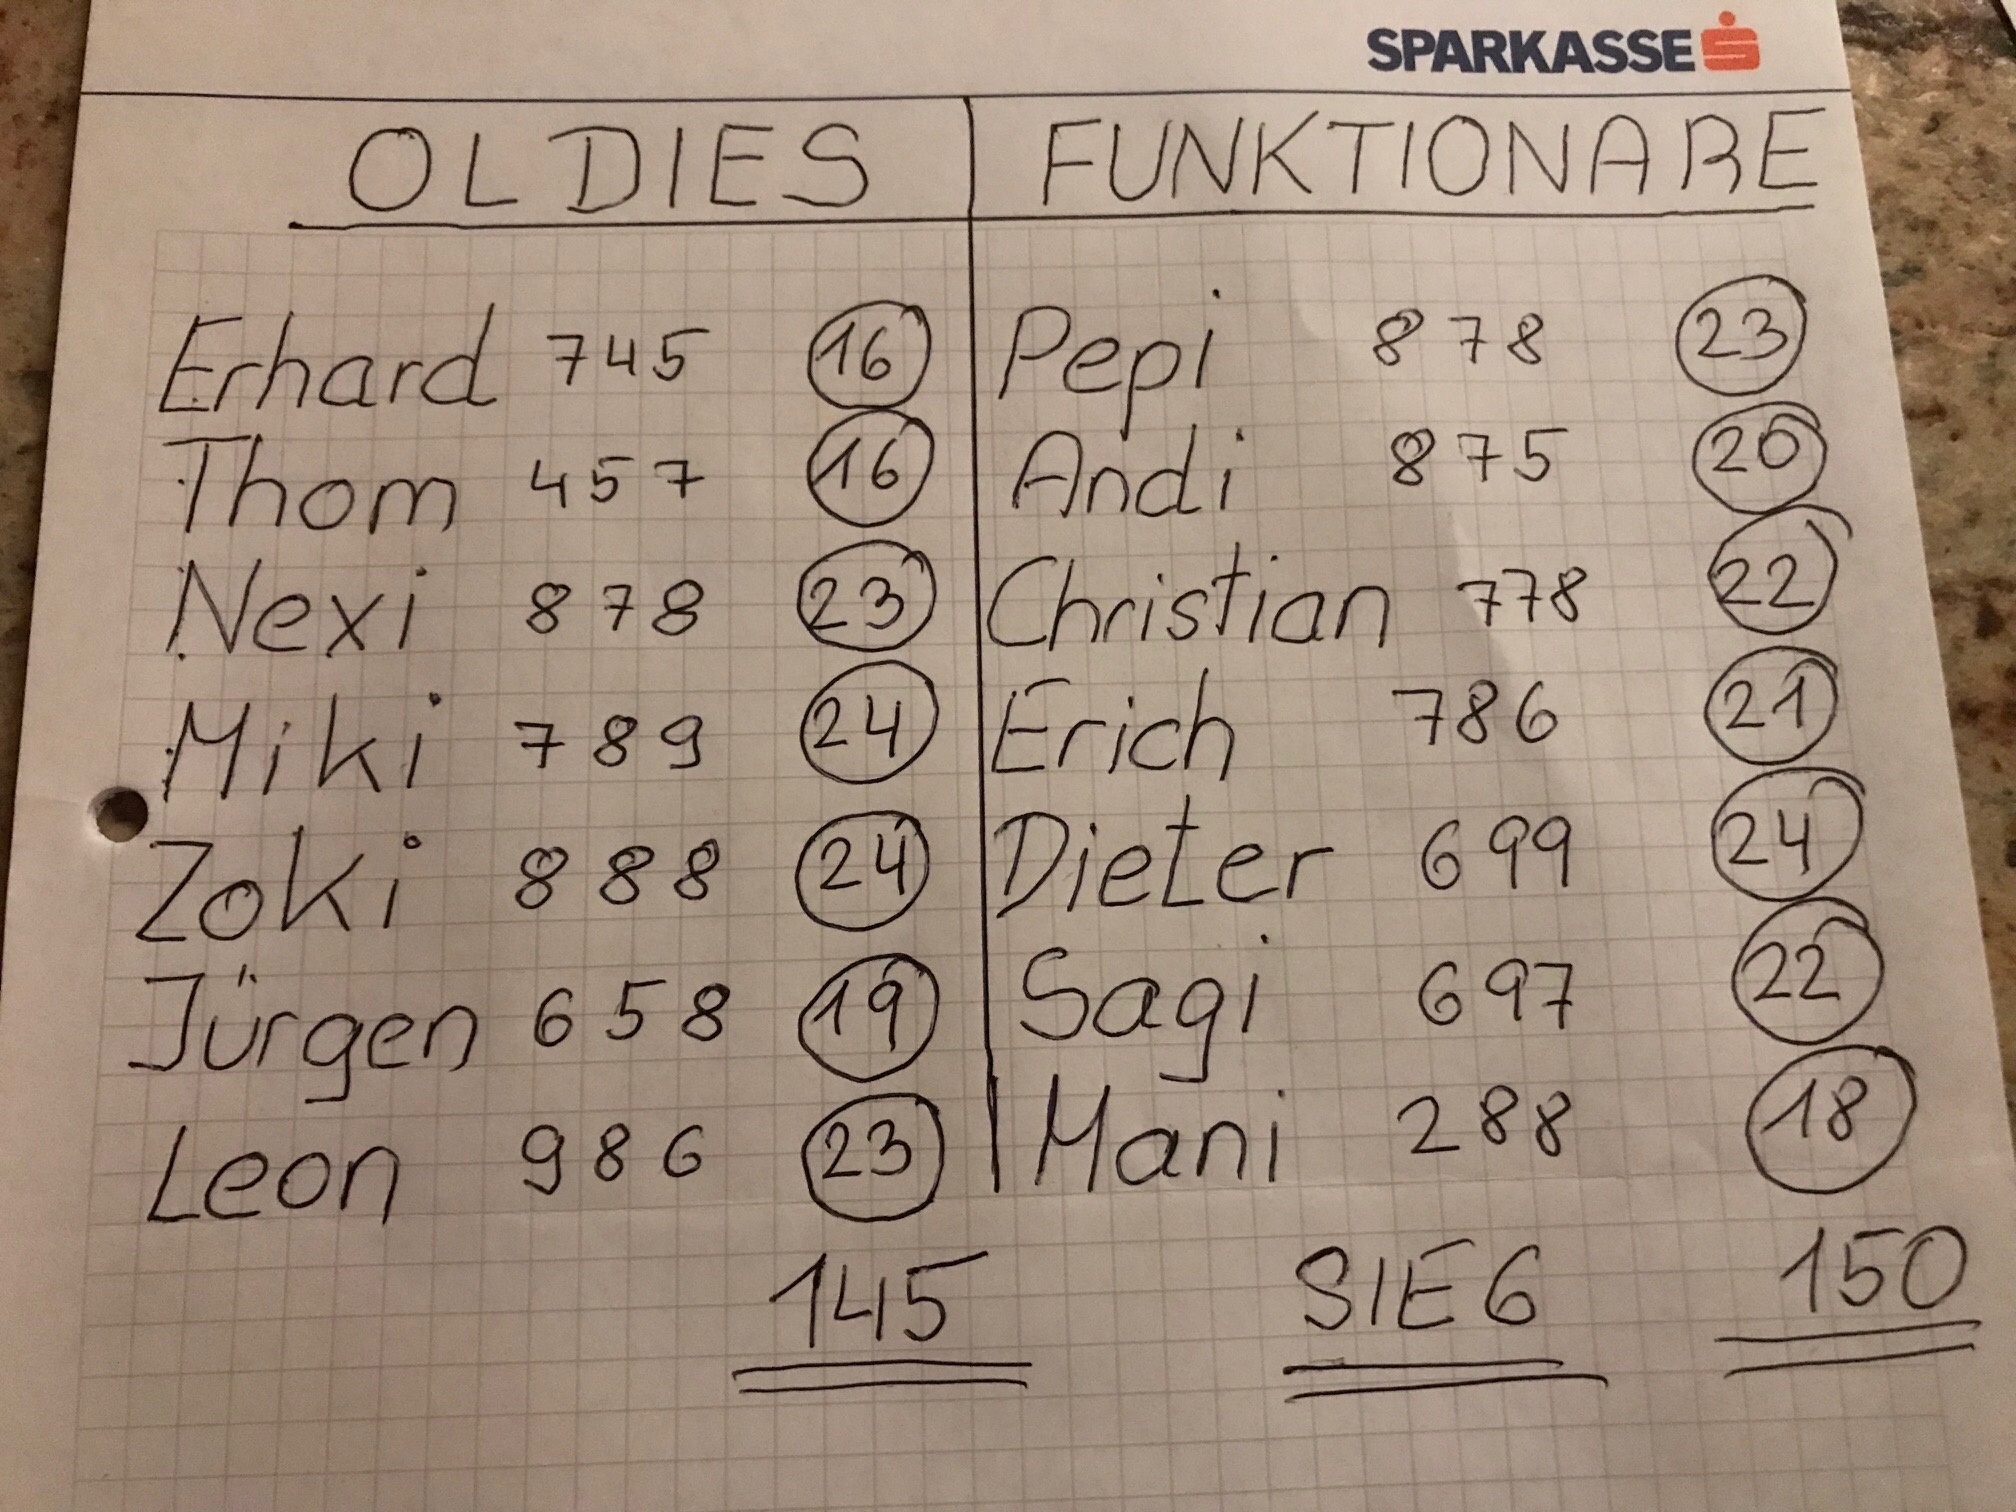 SPARKASSE
OLDIES FUNKTIONARE
Erhard 745 16 Pepi 878 23
Thom 457 16 Andi 875 20
Nexi 878 23 Christian 778 22
Miki 789 24 Erich 786 21
Zoki 888 24 Dieter 699 24
Jürgen 658 19 Sagi 697 22
Leon 986 23 Mani 288 18
145 SIEG 150